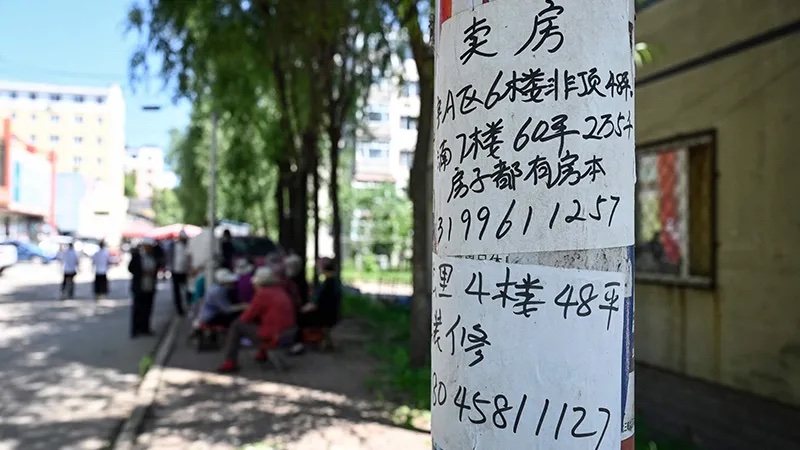 卖房
A区6楼非顶48平
7楼 60平
房子都有房本
3199611257
里 4楼 48平
装修
3045811127